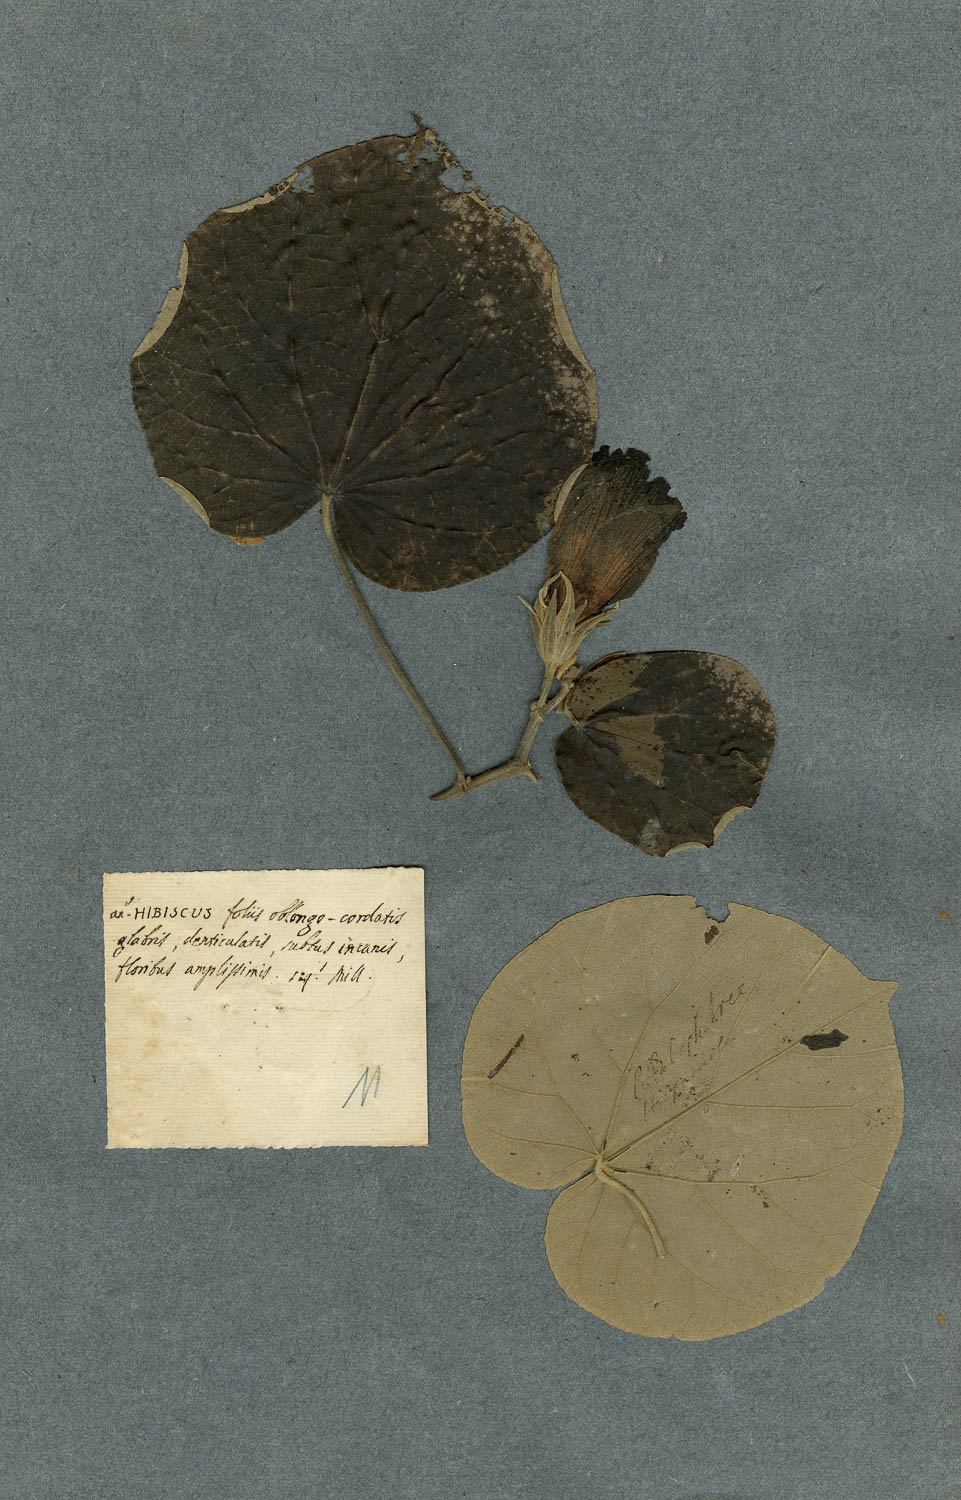 HIBISCUS foliis oblongo-cordatis
glabris, denticulatis, subtus incanis,
floribus amplissimis. Mill.
tree